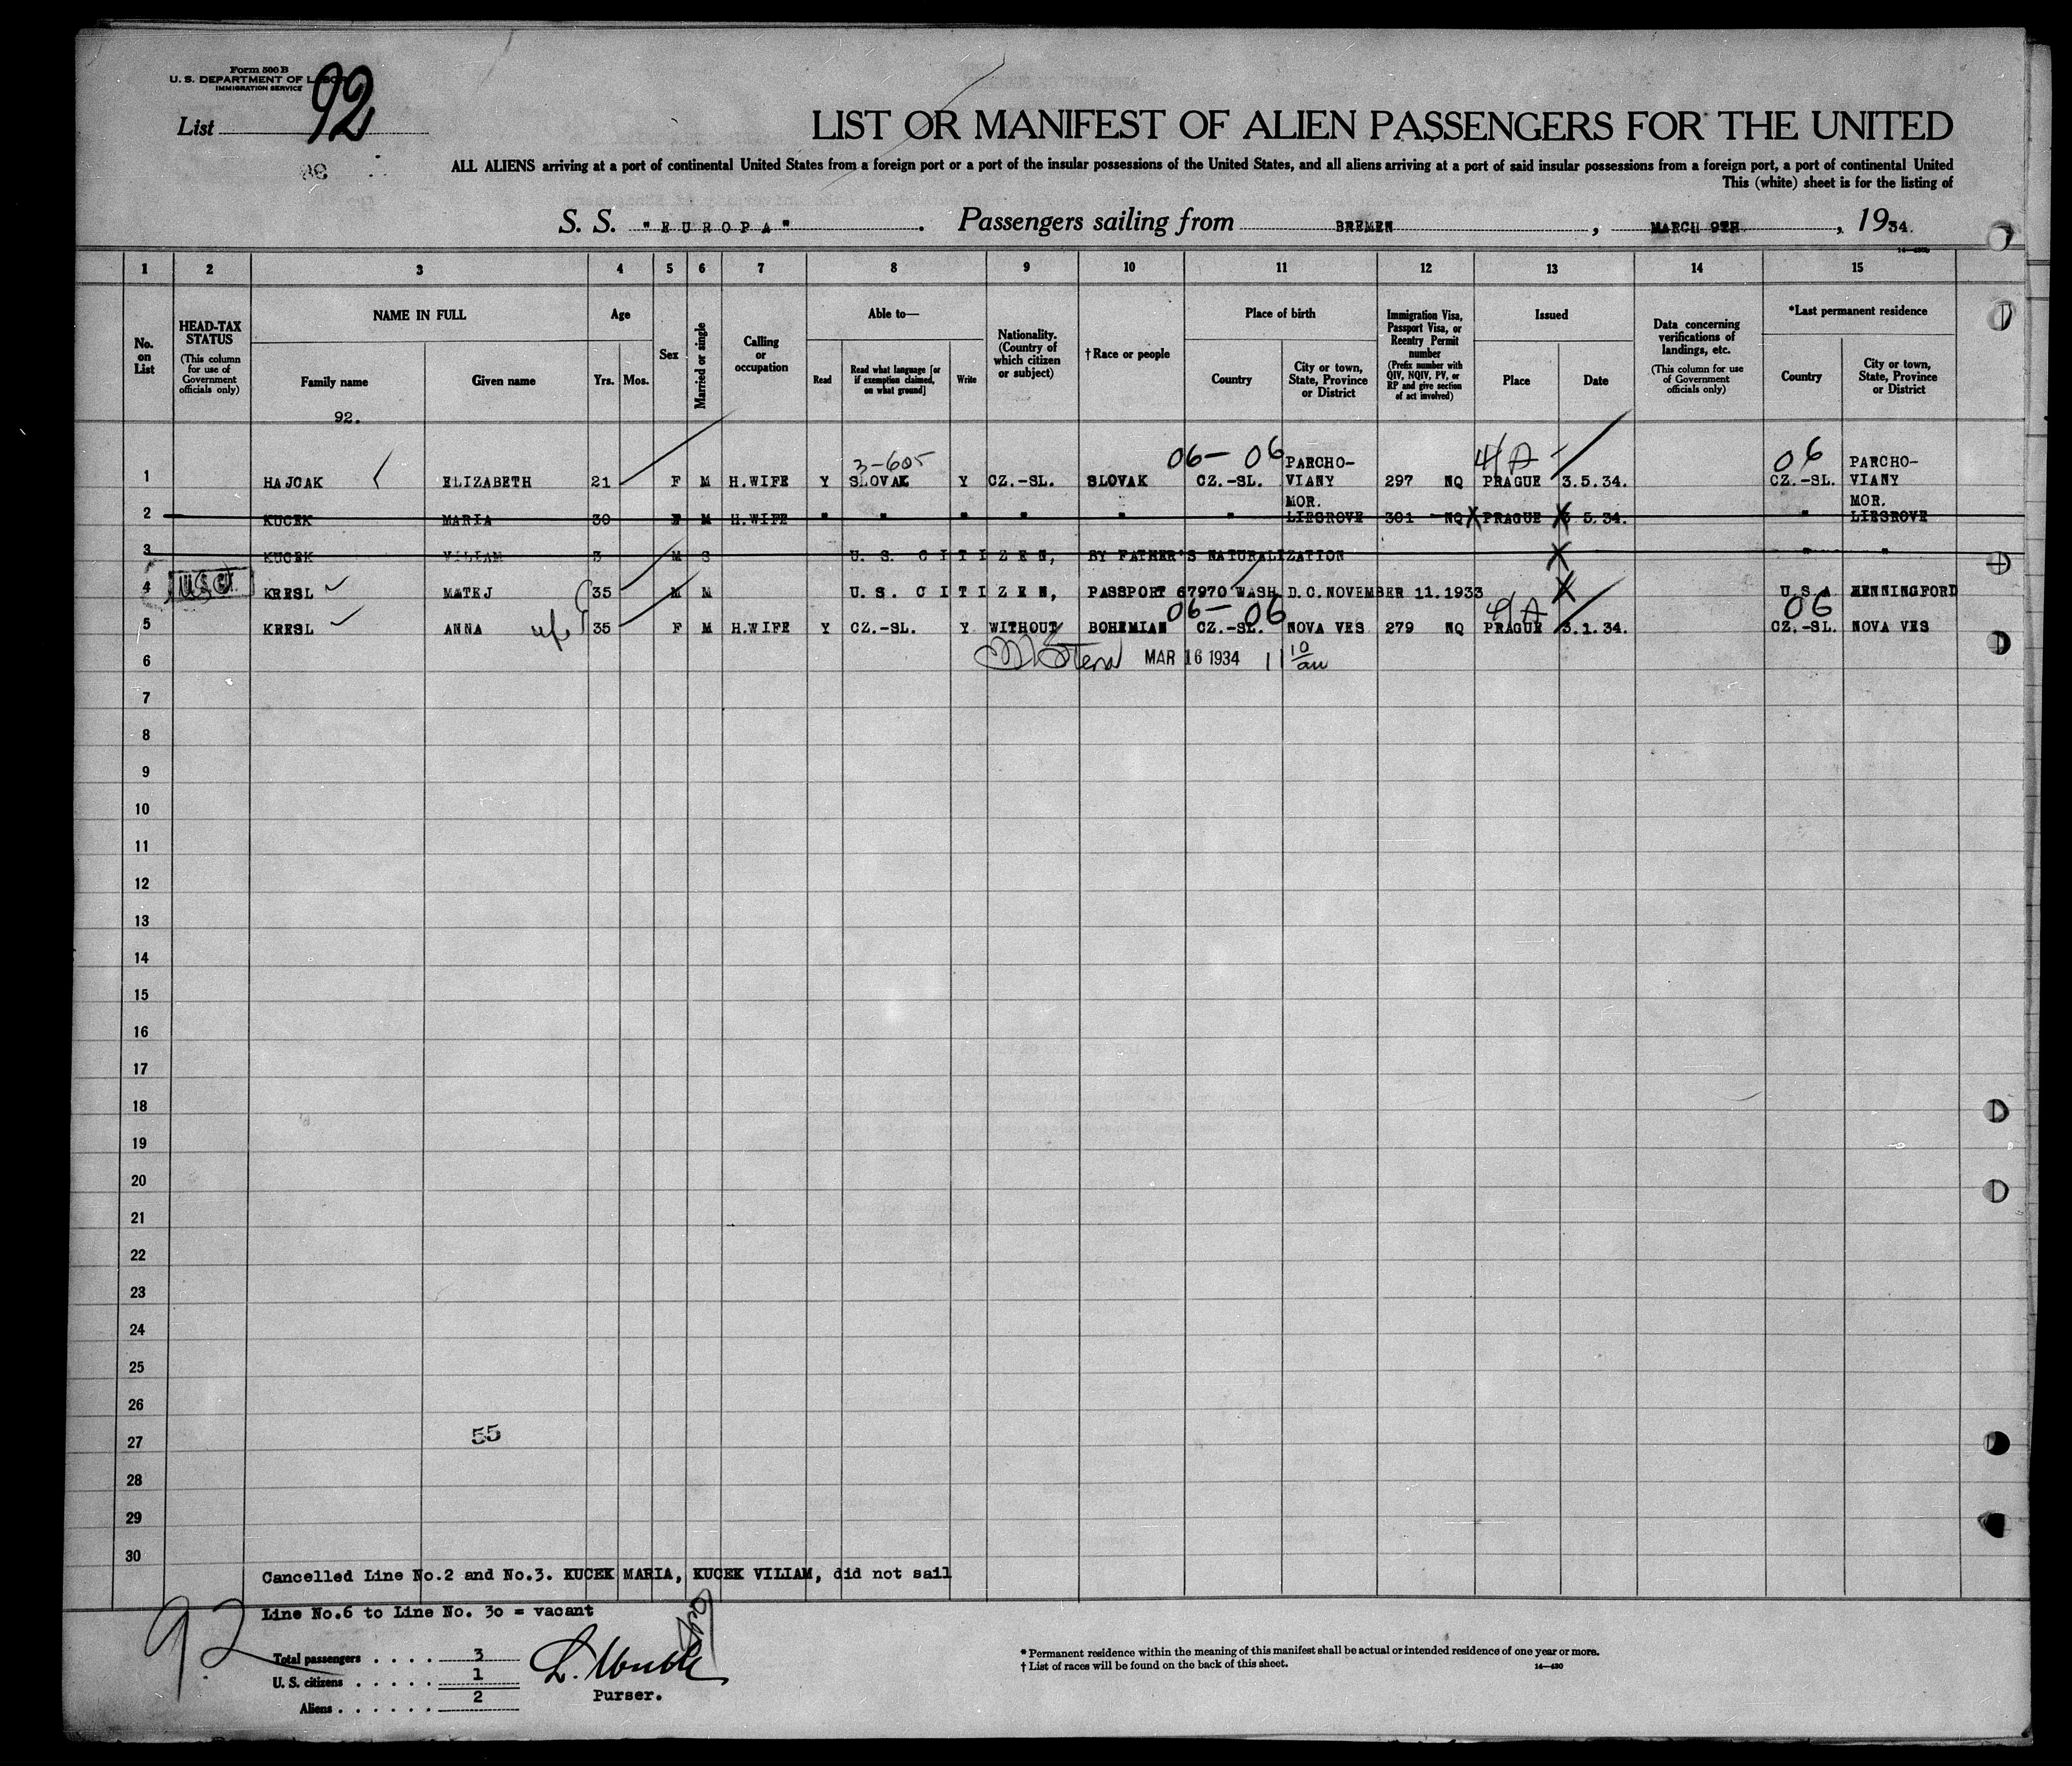 Form 500 B
U. S. DEPARTMENT OF LABOR
IMMIGRATION SERVICE
List 92
LIST OR MANIFEST OF ALIEN PASSENGERS FOR THE UNITED
ALL ALIENS arriving at a port of continental United States from a foreign port or a port of the insular possessions of the United States, and all aliens arriving at a port of said insular possessions from a foreign port, a port of continental United
This (white) sheet is for the listing of
S. S. "EUROPA". Passengers sailing from BREMEN, MARCH 9TH, 1934.
1 2 3 4 5 6 7 8 9 10 11 12 13 14 15
No. on List
HEAD-TAX STATUS (This column for use of Government officials only)
NAME IN FULL
Family name
Given name
Age
Yrs. Mos.
Sex
Married or single
Calling or occupation
Able to—
Read
Read what language [or if exemption claimed, on what ground]
Write
Nationality. (Country of which citizen or subject)
† Race or people
Place of birth
Country
City or town, State, Province or District
Immigration Visa, Passport Visa, or Reentry Permit number (Prefix number with QIV, NQIV, PV, or RP and give section of act involved)
Issued
Place
Date
Data concerning verifications of landings, etc. (This column for use of Government officials only)
*Last permanent residence
Country
City or town, State, Province or District
92.
3-605 06— 06 4/A 06
1 HAJCAK ELIZABETH 21 F M H.WIFE Y SLOVAK Y CZ.-SL. SLOVAK CZ.-SL. PARCHO-VIANY 297 NQ PRAGUE 3.5.34. CZ.-SL. PARCHO-VIANY
2 KUCEK MARIA 30 F M H.WIFE " " " " " " MOR. LIESKOVE 301 NQ PRAGUE 3 5.34. " MOR. LIESKOVE
3 KUCEK VILIAM 3 M S U. S. CITIZEN, BY FATHER'S NATURALIZATION " "
4 USC KRESL MATEJ 35 M M U. S. CITIZEN, PASSPORT 67970 WASH. D.C. NOVEMBER 11.1933 U.S.A HENNINGFORD
06— 06 4/A 06
5 KRESL ANNA wf 35 F M H.WIFE Y CZ.-SL. Y WITHOUT BOHEMIAN CZ.-SL. NOVA VES 279 NQ PRAGUE 3.1.34. CZ.-SL. NOVA VES
6 MAR 16 1934 11 10/am
7
8
9
10
11
12
13
14
15
16
17
18
19
20
21
22
23
24
25
26
27 55
28
29
30
Cancelled Line No.2 and No.3. KUCEK MARIA, KUCEK VILIAM, did not sail
Line No.6 to Line No. 3o = vacant
92
Total passengers . . . . 3
U. S. citizens . . . . . 1
Aliens . . . . . . 2
Purser.
* Permanent residence within the meaning of this manifest shall be actual or intended residence of one year or more.
† List of races will be found on the back of this sheet.
14—430